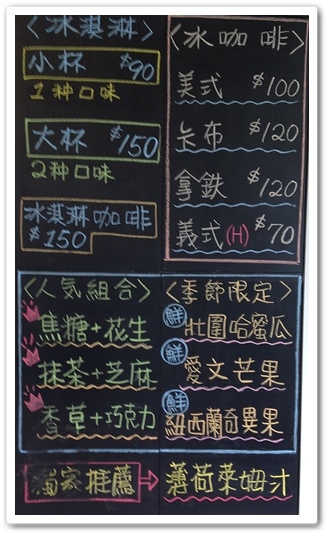 〈冰淇淋〉
小杯 $90
1种口味
大杯 $150
2种口味
冰淇淋咖啡
$150
〈冰咖啡〉
美式 $100
卡布 $120
拿鉄 $120
義式(H) $70
〈人気組合〉
焦糖+花生
抹茶+芝麻
香草+巧克力
〈季節限定〉
鮮 壯圍哈蜜瓜
鮮 愛文芒果
鮮 紐西蘭奇異果
獨家推薦→薄荷萊姆汁